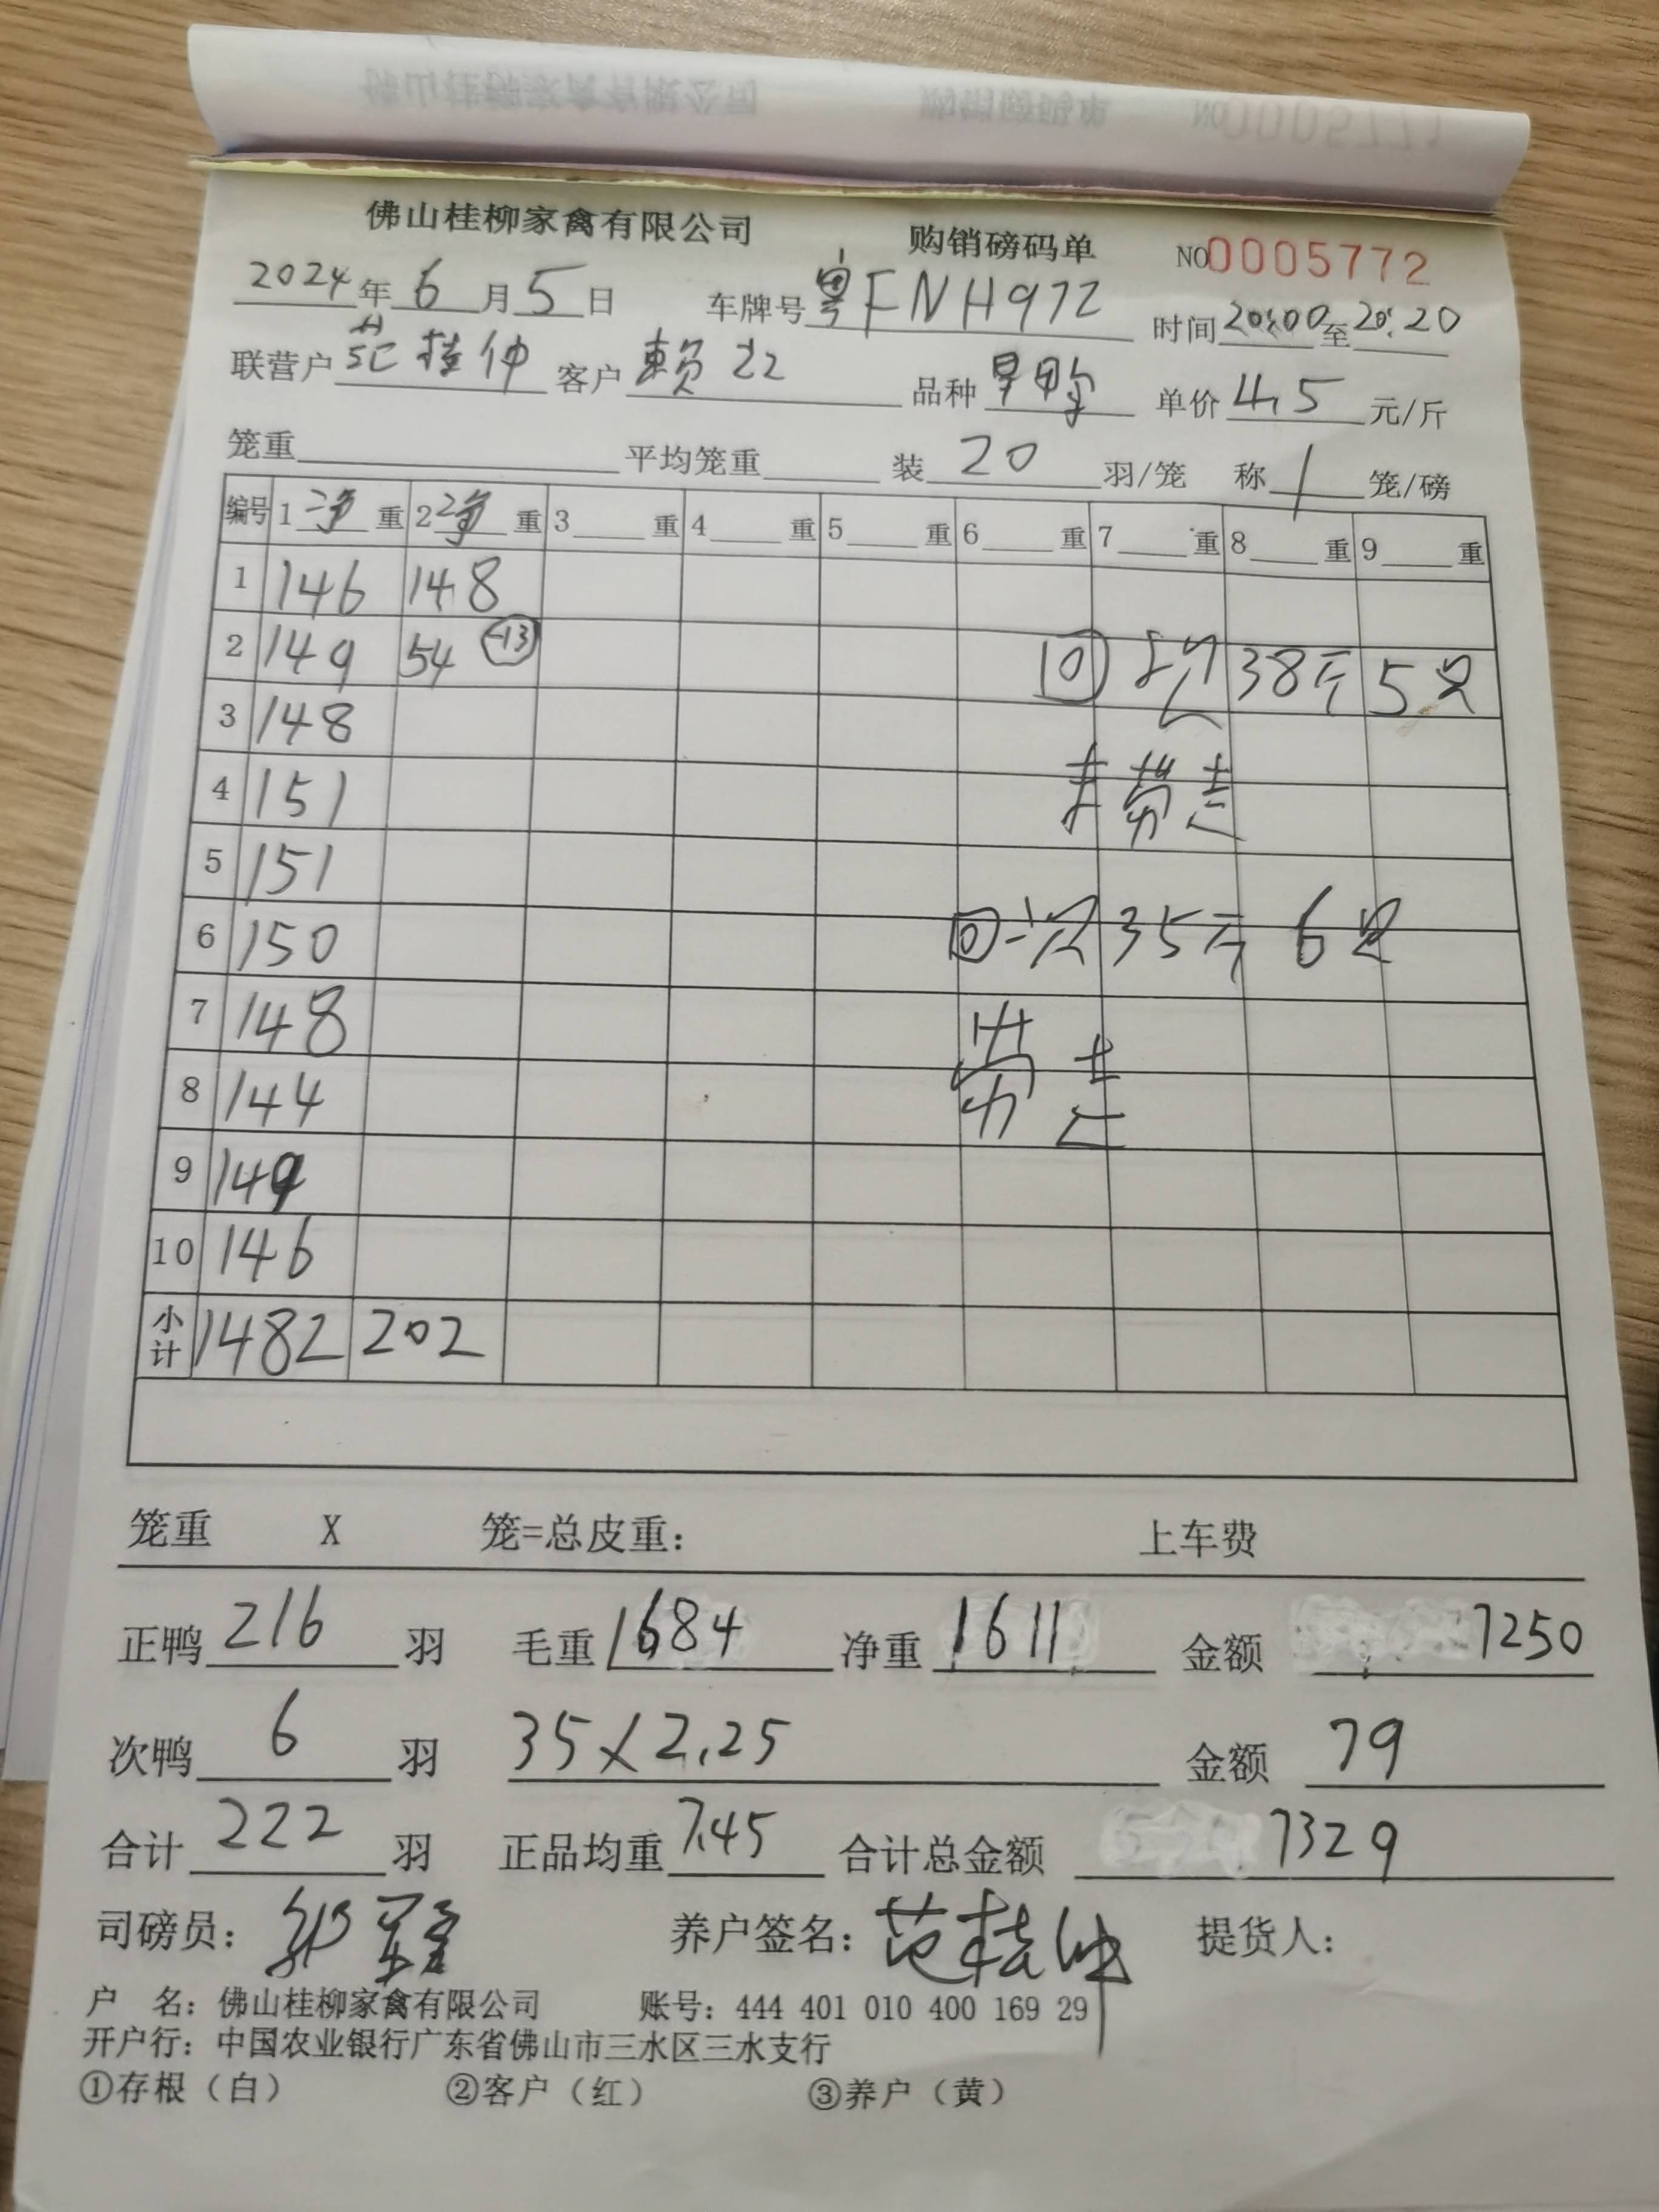 佛山桂柳家禽有限公司 购销磅码单 NO0005772
2024年6月5日 车牌号粤FNH972 时间20:00至20:20
联营户范桂仲 客户赖 品种旱鸭 单价4.5元/斤
笼重 平均笼重 装20羽/笼 称1笼/磅
编号 1净重 2净重 3重 4重 5重 6重 7重 8重 9重
1 146 148
2 149 54 -13 回 38斤5只
3 148
4 151 未带走
5 151
6 150 回次35斤6只
7 148
8 144 带走
9 149
10 146
小计 1482 202
笼重 X 笼=总皮重: 上车费
正鸭216羽 毛重1684 净重1611 金额7250
次鸭6羽 35×2.25 金额79
合计222羽 正品均重7.45 合计总金额7329
司磅员: 养户签名:范桂仲 提货人:
户 名:佛山桂柳家禽有限公司 账号:444 401 010 400 169 29
开户行:中国农业银行广东省佛山市三水区三水支行
①存根(白) ②客户(红) ③养户(黄)